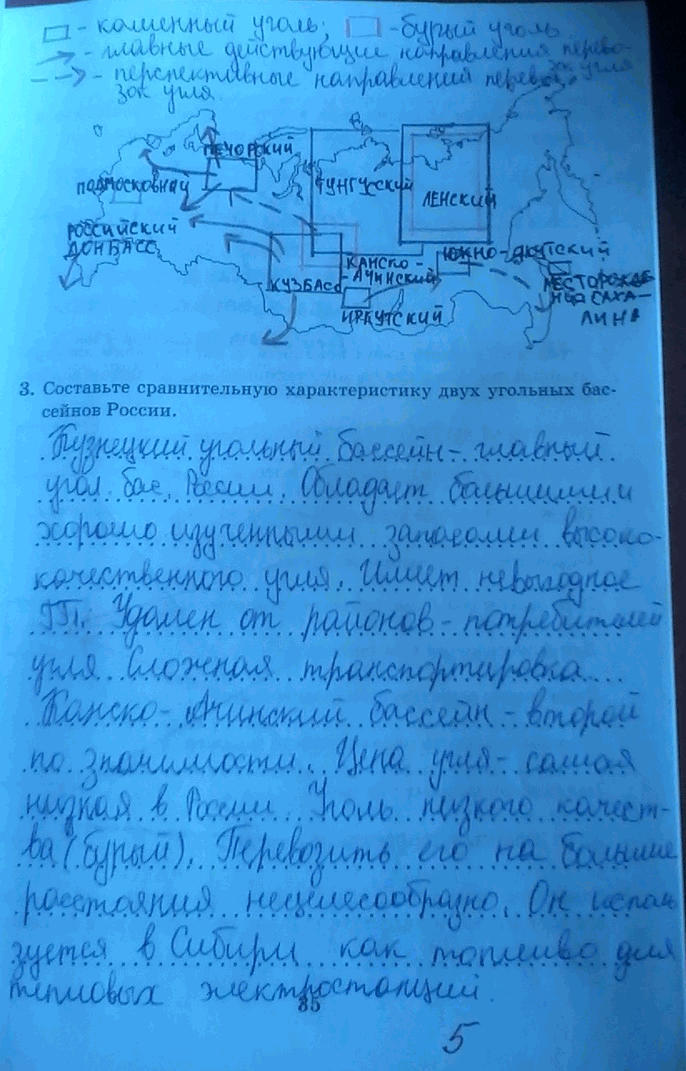 - каменный уголь; - бурый уголь
- главные действующие направления перево-
зок угля
- перспективные направлений перево-
зок угля
ПЕЧОРСКИЙ
ПОДМОСКОВНЫЙ
ТУНГУССКИЙ
ЛЕНСКИЙ
РОССИЙСКИЙ
ДОНБАСС
КАНСКО-
АЧИНСКИЙ
ЮЖНО-ЯКУТСКИЙ
КУЗБАСС
ИРКУТСКИЙ
МЕСТОРОЖДЕ-
НИЯ САХА-
ЛИНА
3. Составьте сравнительную характеристику двух угольных бас-
сейнов России.
Кузнецкий угольный бассейн - главный
угол. бас. России. Обладает большими и
хорошо изученными запасами высоко-
качественного угля. Имеет невыгодное
ГП. Удален от районов - потребителей
угля. Сложная транспортировка
Канско-Ачинский бассейн - второй
по значимости. Цена угля - самая
низкая в России. Уголь низкого качест-
ва (бурый). Перевозить его на большие
расстояния нецелесообразно. Он исполь
зуется в Сибири как топливо для
тепловых электростанций.
85
5